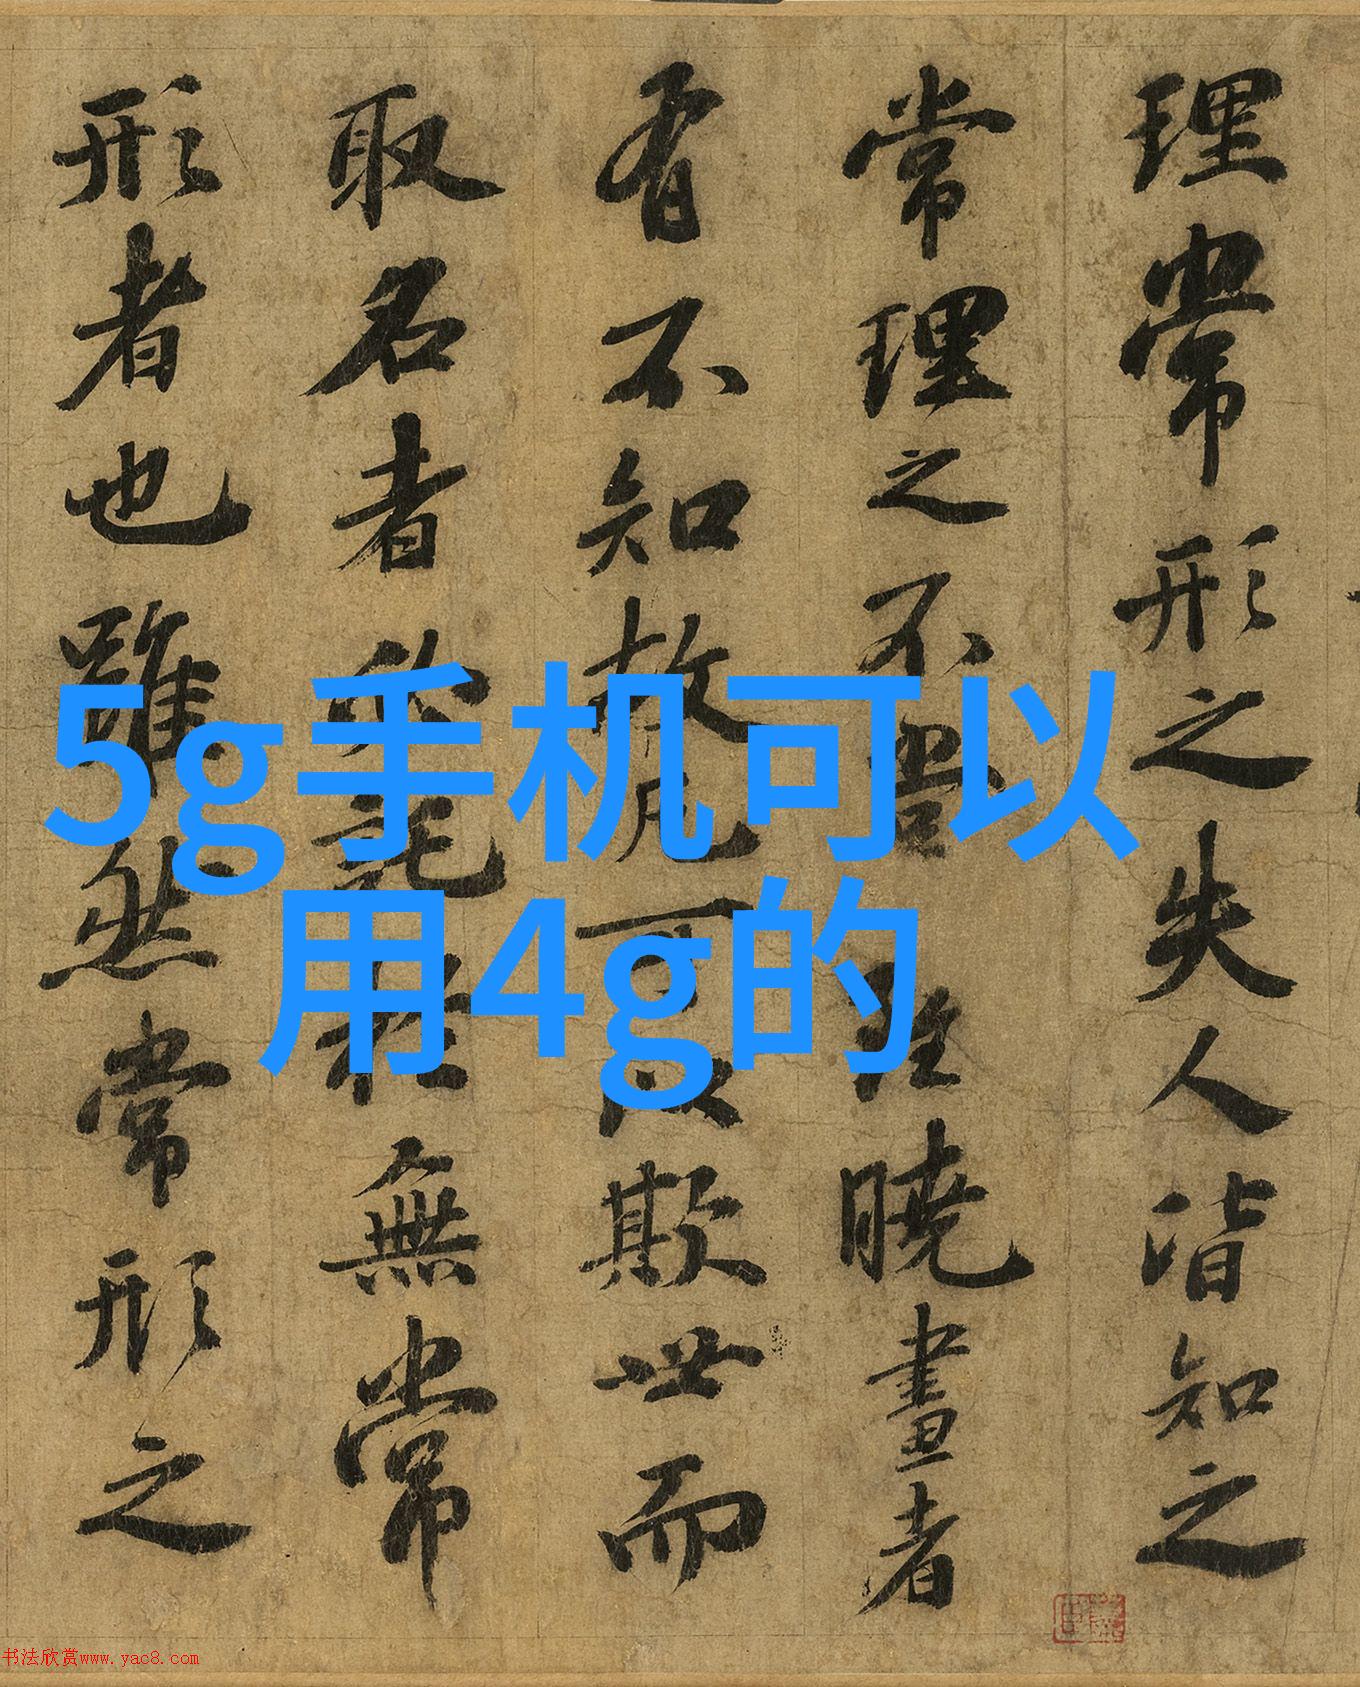 5g手机可以
用4g的
理常形之失人皆知之
常理之不當雖曉畫者
有不知故凡可以欺世而
取名者必託於無常
形者也雖然常形之
书法欣赏www.yac8.com